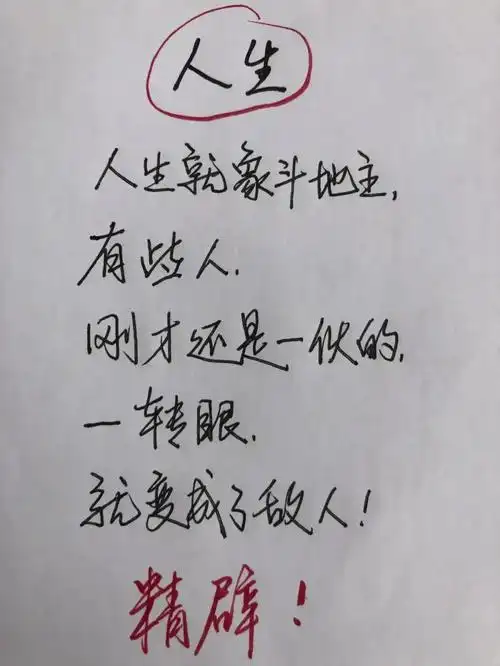 人生
人生就象斗地主,
有些人.
刚才还是一伙的.
一转眼.
就变成了敌人!
精辟!